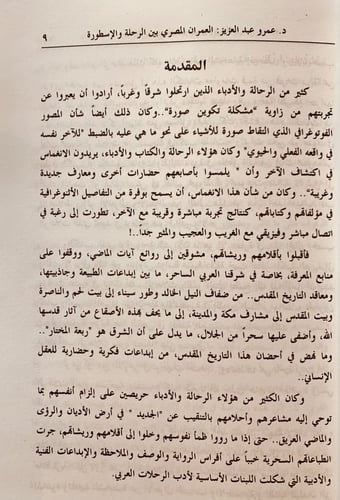 د. عمرو عبد العزيز: العمران المصري بين الرحلة والإسطورة ٩
المقدمة
كثير من الرحالة والأدباء الذين ارتحلوا شرقاً وغرباً، أرادوا أن يعبروا عن
تجربتهم من زاوية "مشكلة تكوين صورة"..وكان ذلك أيضاً شأن المصور
الفوتوغرافي الذي التقاط صورة للأشياء على نحو ما هي عليه بالضبط "للآخر نفسه
في واقعه الفعلي والحيوي" وكان هؤلاء الرحالة والكتاب والأدباء، يريدون الانغماس
في اكتشاف الآخر وأن " يلمسوا بأصابعهم حضارات أخرى ومعارف جديدة
وغريبة".. وكان من شأن هذا الانغماس، أن يسمح بوفرة من التفاصيل الأثنوغرافية
في مؤلفاتهم وكتاباتهم، كنتائج تجربة مباشرة وقريبة مع الآخر، تطورت إلى رغبة في
اتصال مباشر وفيزيقي مع الغريب والعجيب والمثير جداً..!
فأقبلوا بأقلامهم وريشاتهم، مشوقين إلى روائع آيات الماضي، ووقفوا على
منابع المعرفة، بخاصة في شرقنا العربي الساحر، ما بين إبداعات الطبيعة وجاذبيتها،
ومعاقد التاريخ المقدس.. من ضفاف النيل الخالد وطور سيناء إلى بيت لحم والناصرة
وبيت المقدس إلى مشارف مكة والمدينة، إلى ما يحف بهذه الأصقاع من آثار قدسها
الله، وأضفى عليها سحراً من الجلال، ما يدل على أن الشرق هو "ربعة المختار"..
وما نهض في أحضان هذا التاريخ المقدس، من إبداعات فكرية وحضارية للعقل
الإنساني..
وكان الكثير من هؤلاء الرحالة والأدباء حريصين على إلزام أنفسهم بما
توحي إليه مشاعرهم وأحلامهم بالتنقيب عن "الجديد " في أرض الأديان والرؤى
والماضي العريق.. حتى إذا ما رووا ظمأ نفوسهم وخلوا إلى أقلامهم وريشاتهم، جرت
انطباعاتهم السحرية خبباً على أفراس الرواية والوصف والملاحظة والإبداعات الفنية
والأدبية التي شكلت اللبنات الأساسية لأدب الرحلات العربي.